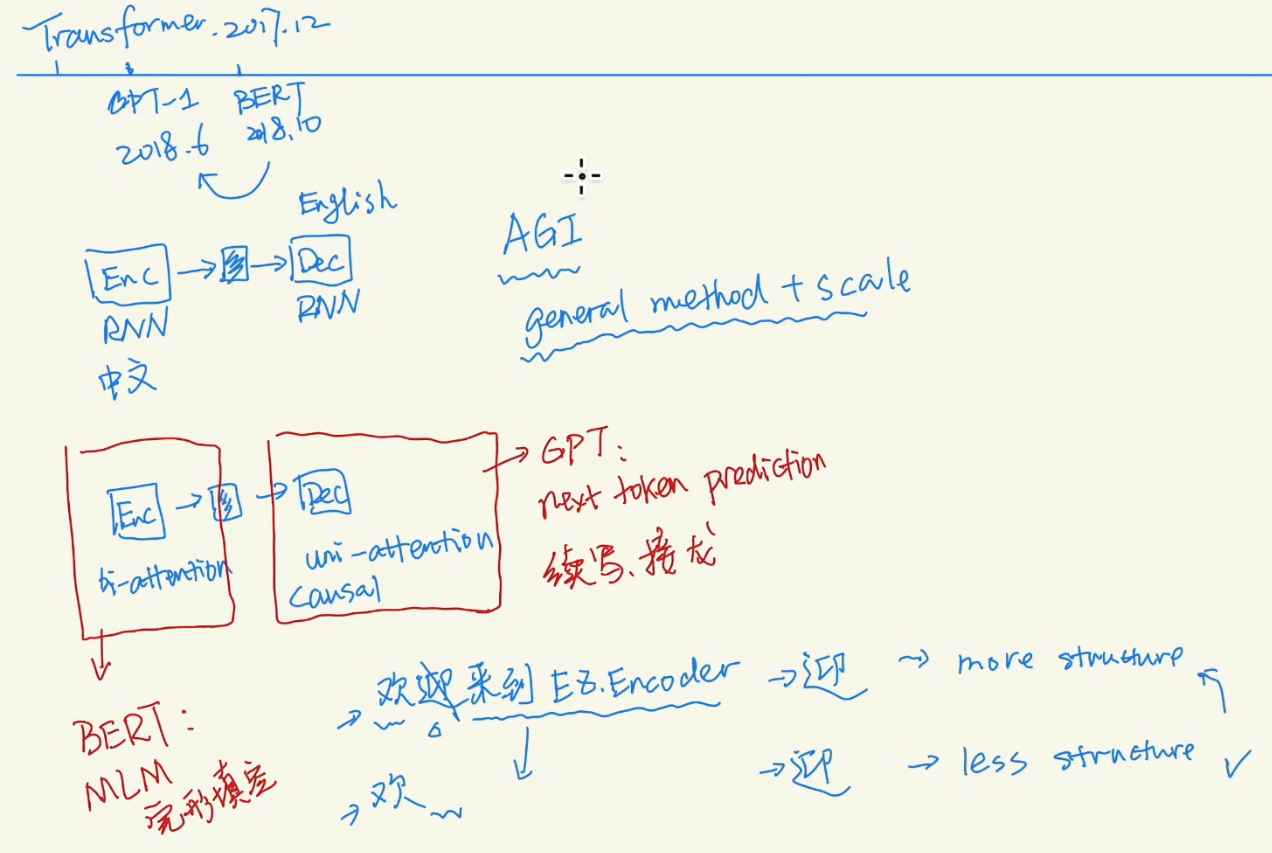 Transformer. 2017.12
GPT-1 BERT
2018.6 2018.10
English
Enc Dec
RNN RNN
中文
AGI
general method + scale
Enc Dec
bi-attention
uni-attention
causal
GPT:
next token prediction
续写、接龙
BERT:
MLM
完形填空
欢迎来到 EZ.Encoder 迎 more structure
欢 迎 less structure